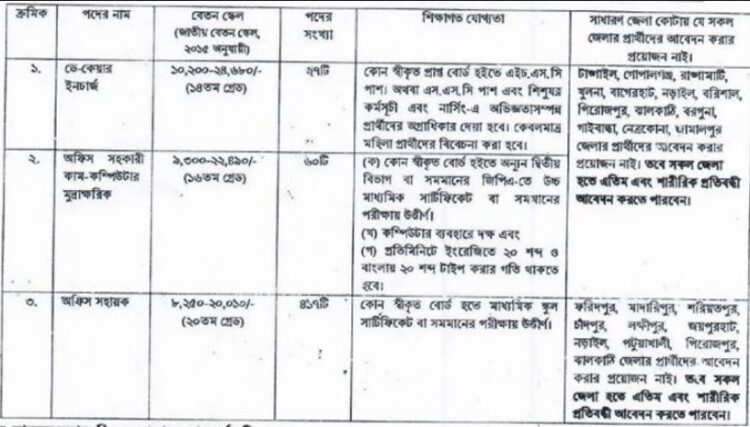 ক্রমিক
পদের নাম
বেতন স্কেল
(জাতীয় বেতন স্কেল,
২০১৫ অনুযায়ী)
পদের
সংখ্যা
শিক্ষাগত যোগ্যতা
সাধারণ জেলা কোটায় যে সকল
জেলার প্রার্থীদের আবেদন করার
প্রয়োজন নাই।
১.
ডে-কেয়ার
ইনচার্জ
১০,২০০-২৪,৬৮০/-
(১৪তম গ্রেড)
২৭টি
কোন স্বীকৃত প্রাপ্ত বোর্ড হইতে এইচ.এস.সি
পাশ। অথবা এস.এস.সি পাশ এবং শিশুযত্ন
কর্মসূচী এবং নার্সিং-এ অভিজ্ঞতাসম্পন্ন
প্রার্থীদের অগ্রাধিকার দেয়া হবে। কেবলমাত্র
মহিলা প্রার্থীদের বিবেচনা করা হবে।
টাঙ্গাইল, গোপালগঞ্জ, রাঙ্গামাটি,
খুলনা, বাগেরহাট, নড়াইল, বরিশাল,
পিরোজপুর, ঝালকাঠি, বরগুনা,
গাইবান্ধা, নেত্রকোনা, জামালপুর
জেলার প্রার্থীদের আবেদন করার
প্রয়োজন নাই। তবে সকল জেলা
হতে এতিম এবং শারীরিক প্রতিবন্ধী
আবেদন করতে পারবেন।
২.
অফিস সহকারী
কাম-কম্পিউটার
মুদ্রাক্ষরিক
৯,৩০০-২২,৪৯০/-
(১৬তম গ্রেড)
৬০টি
(ক) কোন স্বীকৃত বোর্ড হইতে অন্যুন দ্বিতীয়
বিভাগ বা সমমানের জিপিএ-তে উচ্চ
মাধ্যমিক সার্টিফিকেট বা সমমানের
পরীক্ষায় উত্তীর্ণ।
(খ) কম্পিউটার ব্যবহারে দক্ষ এবং
(গ) প্রতিমিনিটে ইংরেজিতে ২০ শব্দ ও
বাংলায় ২০ শব্দ টাইপ করার গতি থাকতে
হবে।
৩.
অফিস সহায়ক
৮,২৫০-২০,০১০/-
(২০তম গ্রেড)
৪১৭টি
কোন স্বীকৃত বোর্ড হতে মাধ্যমিক স্কুল
সার্টিফিকেট বা সমমানের পরীক্ষায় উত্তীর্ণ।
ফরিদপুর, মাদারিপুর, শরিয়তপুর,
চাঁদপুর, লক্ষীপুর, জয়পুরহাট,
নড়াইল, পটুয়াখালী, পিরোজপুর,
ঝালকাঠি জেলার প্রার্থীদের আবেদন
করার প্রয়োজন নাই। তবে সকল
জেলা হতে এতিম এবং শারীরিক
প্রতিবন্ধী আবেদন করতে পারবেন।